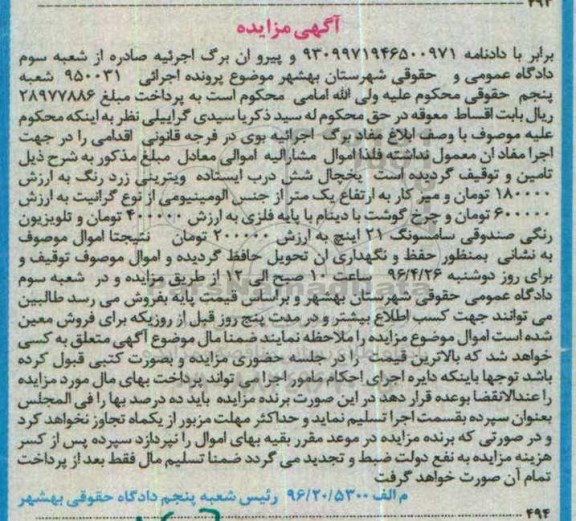 ۴۹۳
آگهی مزایده
برابر با دادنامه ۹۳۰۹۹۷۱۹۴۶۵۰۰۹۷۱ و پیرو ان برگ اجرئیه صادره از شعبه سوم
دادگاه عمومی و حقوقی شهرستان بهشهر موضوع پرونده اجرائی ۹۵۰۰۳۱ شعبه
پنجم حقوقی محکوم علیه ولی الله امامی محکوم است به پرداخت مبلغ ۲۸۹۷۷۸۸۶
ریال بابت اقساط معوقه در حق محکوم له سید ذکریا سیدی گراییلی نظر به اینکه محکوم
علیه موصوف با وصف ابلاغ مفاد برگ اجرائیه بوی در فرجه قانونی اقدامی را در جهت
اجرا مفاد ان معمول نداشته فلذا اموال مشارالیه اموالی معادل مبلغ مذکور به شرح ذیل
تامین و توقیف گردیده است یخچال شش درب ایستاده ویترینی زرد رنگ به ارزش
۱۸۰۰۰۰۰ تومان و میز کار به ارتفاع یک متر از جنس الومینیومی از نوع گرانیت به ارزش
۶۰۰۰۰۰ تومان و چرخ گوشت با دینام با پایه فلزی به ارزش ۴۰۰۰۰۰ تومان و تلویزیون
رنگی صندوقی سامسونگ ۲۱ اینچ به ارزش ۲۰۰۰۰۰ تومان نتیجتا اموال موصوف
به نشانی بمنظور حفظ و نگهداری ان تحویل حافظ گردیده و اموال موصوف توقیف و
برای روز دوشنبه ۹۶/۴/۲۶ ساعت ۱۰ صبح الی ۱۲ از طریق مزایده و در شعبه سوم
دادگاه عمومی حقوقی شهرستان بهشهر و براساس قیمت پایه بفروش می رسد طالبین
می توانند جهت کسب اطلاع بیشتر و در مدت پنج روز قبل از روزیکه برای فروش معین
شده است اموال موضوع مزایده را ملاحظه نمایند ضمنا مال موضوع آگهی متعلق به کسی
خواهد شد که بالاترین قیمت را در جلسه حضوری مزایده و بصورت کتبی قبول کرده
باشد توجها باینکه دایره اجرای احکام مامور اجرا می تواند پرداخت بهای مال مورد مزایده
را عندالانقضا بوعده قرار دهد در این صورت برنده مزایده باید ده درصد بها را فی المجلس
بعنوان سپرده بقسمت اجرا تسلیم نماید و حداکثر مهلت مزبور از یکماه تجاوز نخواهد کرد
و در صورتی که برنده مزایده در موعد مقرر بقیه بهای اموال را نپردازد سپرده پس از کسر
هزینه مزایده به نفع دولت ضبط و تجدید می گردد ضمنا تسلیم مال فقط بعد از پرداخت
تمام آن صورت خواهد گرفت
م الف ۹۶/۲۰/۵۳۰۰ رئیس شعبه پنجم دادگاه حقوقی بهشهر
۴۹۴